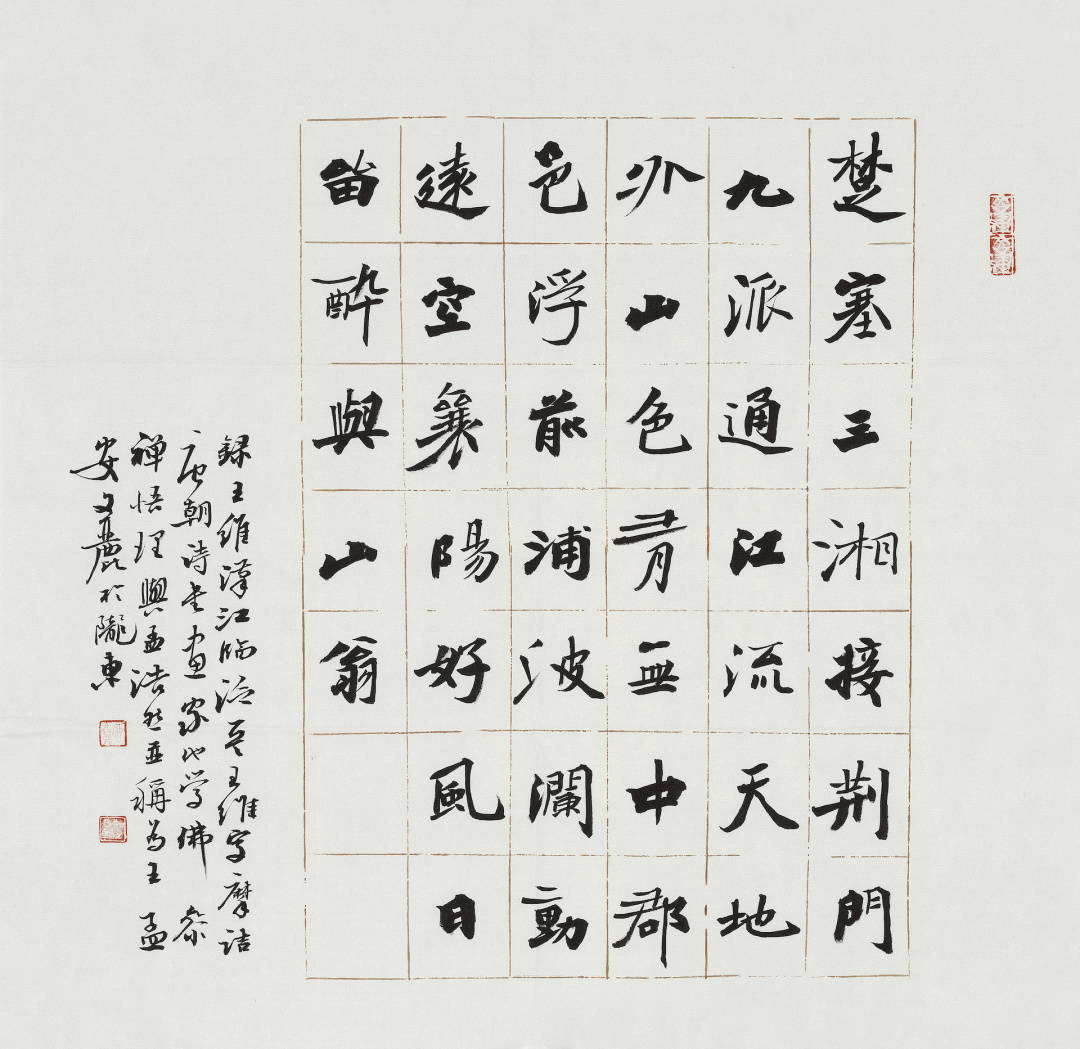 楚塞三湘接荆門
九派通江流天地
外山色有無中郡
邑浮前浦波瀾動
遠空襄陽好風日
留醉與山翁
録王維漢江临泛王維字摩詰
唐朝詩书画家学佛参
禅悟理與孟浩然並稱为王孟
安文麗於隴東